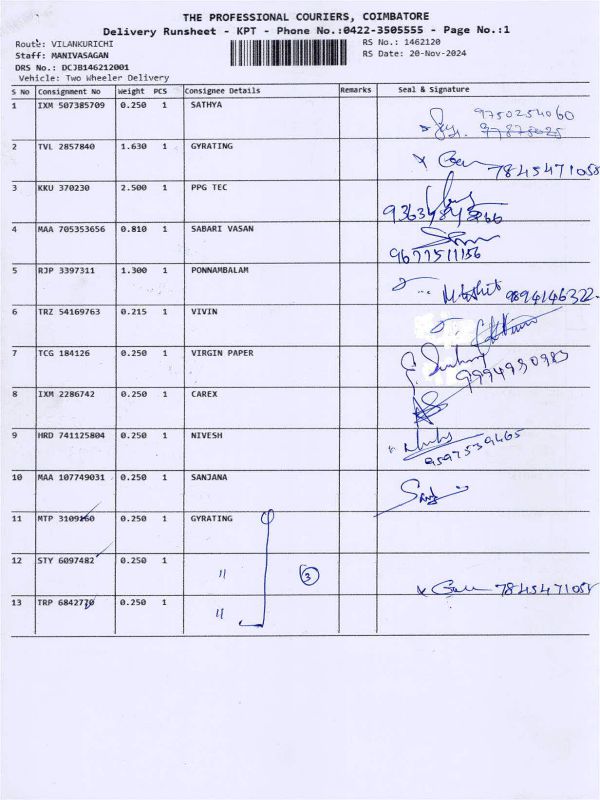 THE PROFESSIONAL COURIERS, COIMBATORE
Delivery Runsheet - KPT - Phone No.:0422-3505555 - Page No.:1
Route: VILANKURICHI RS No.: 1462120
Staff: MANIVASAGAN RS Date: 20-Nov-2024
DRS No.: DCJB146212001
Vehicle: Two Wheeler Delivery
S No Consignment No Weight PCS Consignee Details Remarks Seal & Signature
1 IXM 507385709 0.250 1 SATHYA 9750254060
2 TVL 2857840 1.630 1 GYRATING 7845471058
3 KKU 370230 2.500 1 PPG TEC
4 MAA 705353656 0.810 1 SABARI VASAN
9677511156
5 RJP 3397311 1.300 1 PONNAMBALAM 9894146322
6 TRZ 54169763 0.215 1 VIVIN
7 TCG 184126 0.250 1 VIRGIN PAPER 9994930983
8 IXM 2286742 0.250 1 CAREX
9 HRD 741125804 0.250 1 NIVESH
9597539465
10 MAA 107749031 0.250 1 SANJANA
11 MTP 3109160 0.250 1 GYRATING
12 STY 6097482 0.250 1 " 3 7845471058
13 TRP 6842770 0.250 1 "